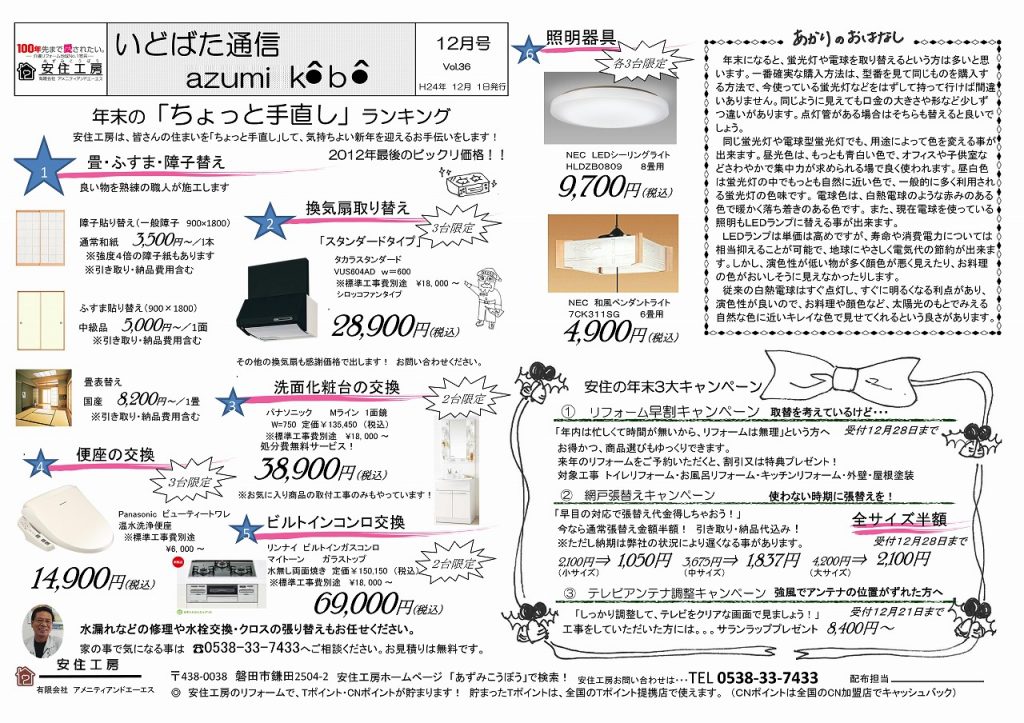 100年先まで愛されたい。
安住工房
有限会社 アメニティアンドエーエス
いどばた通信
azumi kôbô
12月号
Vol.36
H24年 12月 1日発行
年末の「ちょっと手直し」ランキング
安住工房は、皆さんの住まいを「ちょっと手直し」して、気持ちよい新年を迎えるお手伝いをします！
2012年最後のビックリ価格！！
1
畳・ふすま・障子替え
良い物を熟練の職人が施工します
障子貼り替え（一般障子 900×1800）
通常和紙 3,500円～／1本
※強度4倍の障子紙もあります
※引き取り・納品費用含む
ふすま貼り替え（900×1800）
中級品 5,000円～／1面
※引き取り・納品費用含む
畳表替え
国産 8,200円～／1畳
※引き取り・納品費用含む
2
換気扇取り替え
3台限定
「スタンダードタイプ」
タカラスタンダード
VUS604AD w＝600
※標準工事費別途 ¥18,000～
シロッコファンタイプ
28,900円(税込)
その他の換気扇も感謝価格で出します！ お問い合わせください。
3
洗面化粧台の交換
2台限定
パナソニック Mライン 1面鏡
W=750 定価￥135,450 （税込）
※標準工事費別途 ¥18,000～
処分費無料サービス！
38,900円(税込)
※お気に入り商品の取付工事のみもやっています！
4
便座の交換
3台限定
Panasonic ビューティートワレ
温水洗浄便座
※標準工事費別途
¥6,000～
14,900円(税込)
5
ビルトインコンロ交換
2台限定
リンナイ ビルトインガスコンロ
マイトーン ガラストップ
水無し両面焼き 定価￥150,150 （税込）
※標準工事費別途 ¥18,000～
69,000円(税込)
水漏れなどの修理や水栓交換・クロスの張り替えもお任せください。
家の事で気になる事は ☎0538-33-7433へご相談ください。お見積りは無料です。
6
照明器具
各3台限定
NEC LEDシーリングライト
HLDZB0809 8畳用
9,700円(税込)
NEC 和風ペンダントライト
7CK311SG 6畳用
4,900円(税込)
あかりのおはなし
年末になると、蛍光灯や電球を取り替えるという方は多いと思
います。一番確実な購入方法は、型番を見て同じものを購入す
る方法で、今使っている蛍光灯などをはずして持って行けば間違
いありません。同じように見えても口金の大きさや形など少しず
つ違いがあります。点灯管がある場合はそちらも替えると良いで
しょう。
同じ蛍光灯や電球型蛍光灯でも、用途によって色を変える事が
出来ます。昼光色は、もっとも青白い色で、オフィスや子供室な
どさわやかで集中力が求められる場で良く使われます。昼白色
は蛍光灯の中でもっとも自然に近い色で、一般的に多く利用され
る蛍光灯の色味です。電球色は、白熱電球のような赤みのある
色で暖かく落ち着きのある色です。また、現在電球を使っている
照明もLEDランプに替える事が出来ます。
LEDランプは単価は高めですが、寿命や消費電力については
相当抑えることが可能で、地球にやさしく電気代の節約が出来ま
す。しかし、演色性が低い物が多く顔色が悪く見えたり、お料理
の色がおいしそうに見えなかったりします。
従来の白熱電球はすぐ点灯し、すぐに明るくなる利点があり、
演色性が良いので、お料理や顔色など、太陽光のもとでみえる
自然な色に近いキレイな色で見せてくれるという良さがあります。
安住の年末3大キャンペーン
① リフォーム早割キャンペーン 取替を考えているけど・・・
「年内は忙しくて時間が無いから、リフォームは無理」という方へ 受付12月28日まで
お得かつ、商品選びもゆっくりできます。
来年のリフォームをご予約いただくと、割引又は特典プレゼント！
対象工事 トイレリフォーム・お風呂リフォーム・キッチンリフォーム・外壁・屋根塗装
② 網戸張替えキャンペーン 使わない時期に張替えを！
「早目の対応で張替え代金得しちゃおう！」
全サイズ半額
今なら通常張替え金額半額！ 引き取り・納品代込み！
※ただし納期は弊社の状況により遅くなる事があります。
受付12月28日まで
2,100円⇒ 1,050円 3,675円⇒ 1,837円 4,200円⇒ 2,100円
(小サイズ) (中サイズ) (大サイズ)
③ テレビアンテナ調整キャンペーン 強風でアンテナの位置がずれた方へ
「しっかり調整して、テレビをクリアな画面で見ましょう！」 受付12月21日まで
工事をしていただいた方には。。。サランラッププレゼント 8,400円～
安住工房
有限会社 アメニティアンドエーエス
〒438-0038 磐田市鎌田2504-2 安住工房ホームページ「あずみこうぼう」で検索！ 安住工房お問い合わせは・・・TEL 0538-33-7433 配布担当
◎ 安住工房のリフォームで、Tポイント・CNポイントが貯まります！ 貯まったTポイントは、全国のTポイント提携店で使えます。（CNポイントは全国のCN加盟店でキャッシュバック）